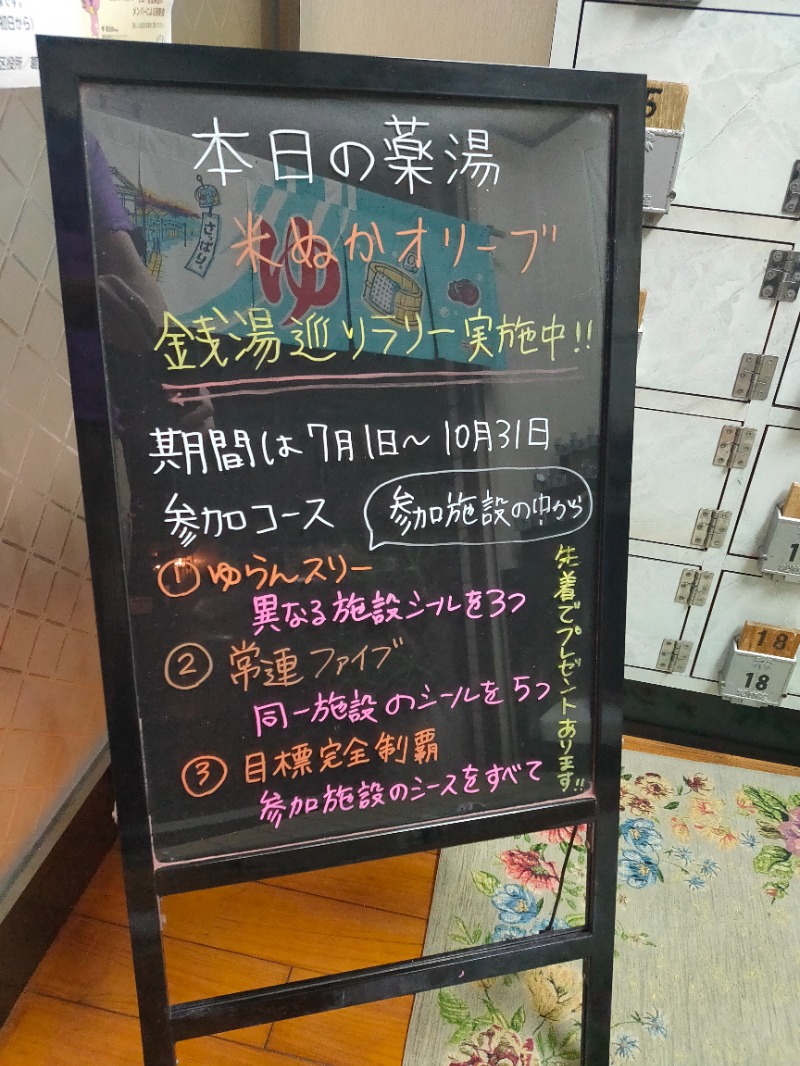 本日の薬湯
米ぬかオリーブ
銭湯巡りラリー実施中!!
期間は7月1日〜10月31日
参加コース
参加施設の中から
①ゆらんスリー
異なる施設シールを3つ
②常連ファイブ
同一施設のシールを5つ
③目標完全制覇
参加施設のシースをすべて
先着でプレゼントあります!!
ゆ
さっぱり。
18
18